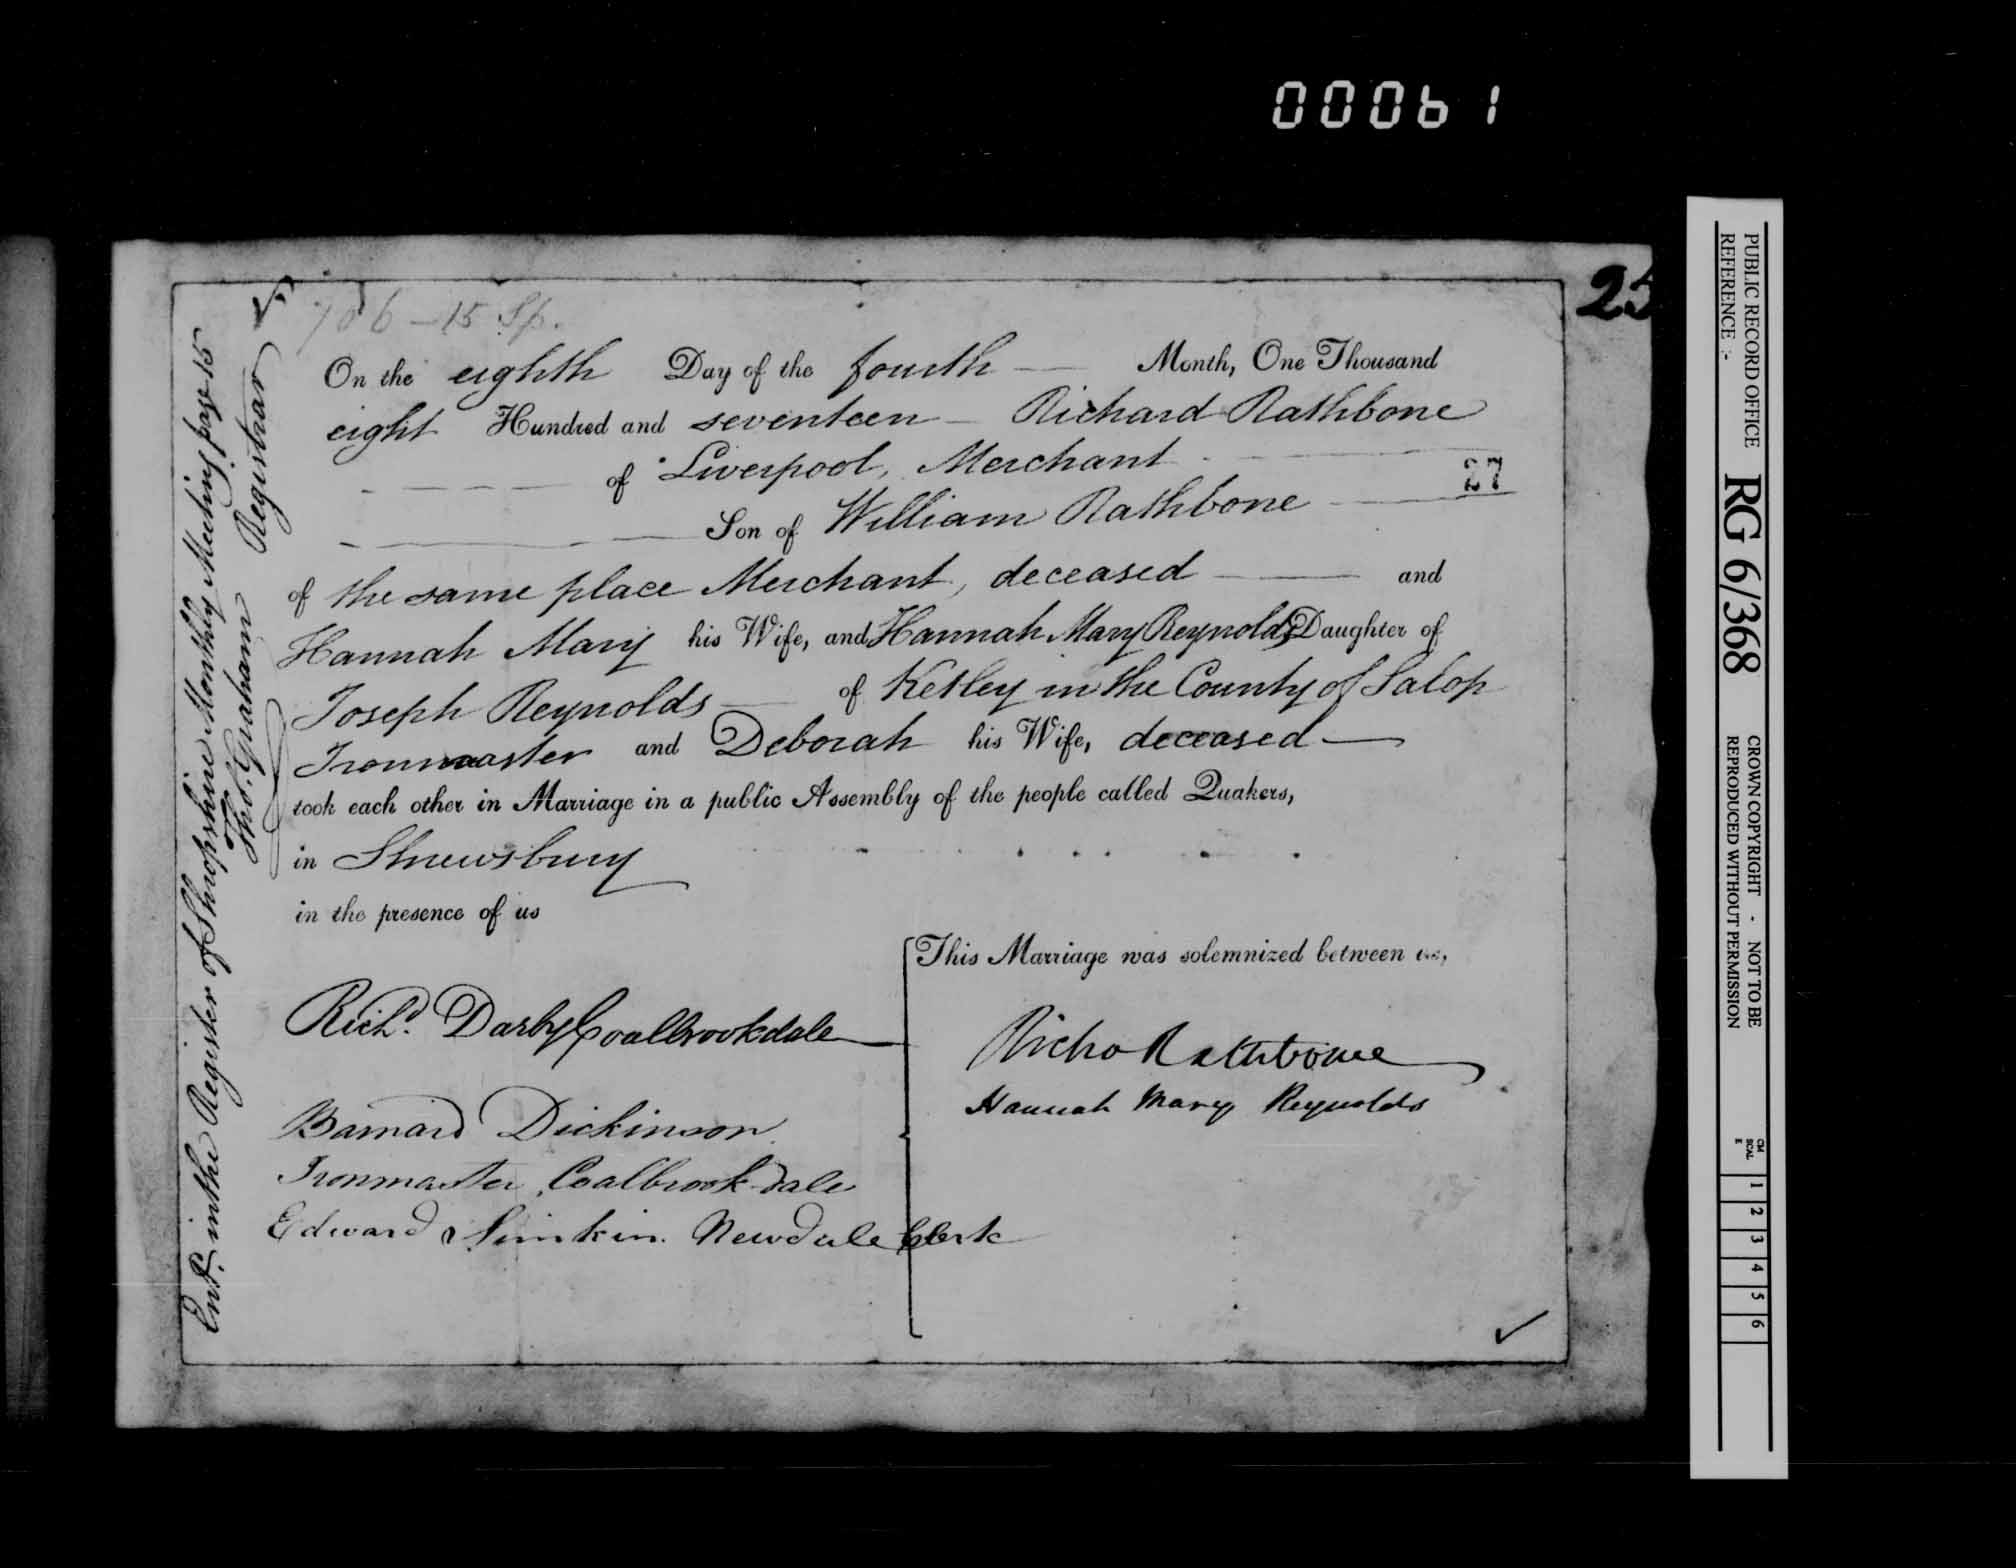 00061
25
706-15 Sp.
On the eighth Day of the fourth — Month, One Thousand
eight Hundred and seventeen — Richard Rathbone
of Liverpool, Merchant
27
Son of William Rathbone
of the same place Merchant, deceased — and
Hannah Mary his Wife, and Hannah Mary Reynolds, Daughter of
Joseph Reynolds — of Ketley in the County of Salop
Ironmaster and Deborah his Wife, deceased —
took each other in Marriage in a public Assembly of the people called Quakers,
in Shrewsbury
in the presence of us
This Marriage was solemnized between us,
Richd. Darby Coalbrookdale
Richd Rathbone
Hannah Mary Reynolds
Barnard Dickinson
Ironmaster, Coalbrook dale
Edward Simkin. Newdale Clerk
Entd. in the Register of Shropshire Monthly Meeting page 15
Thos. Graham Registrar
PUBLIC RECORD OFFICE
REFERENCE :-
RG 6/368
CROWN COPYRIGHT - NOT TO BE
REPRODUCED WITHOUT PERMISSION
CM
SCAL
E
1 2 3 4 5 6